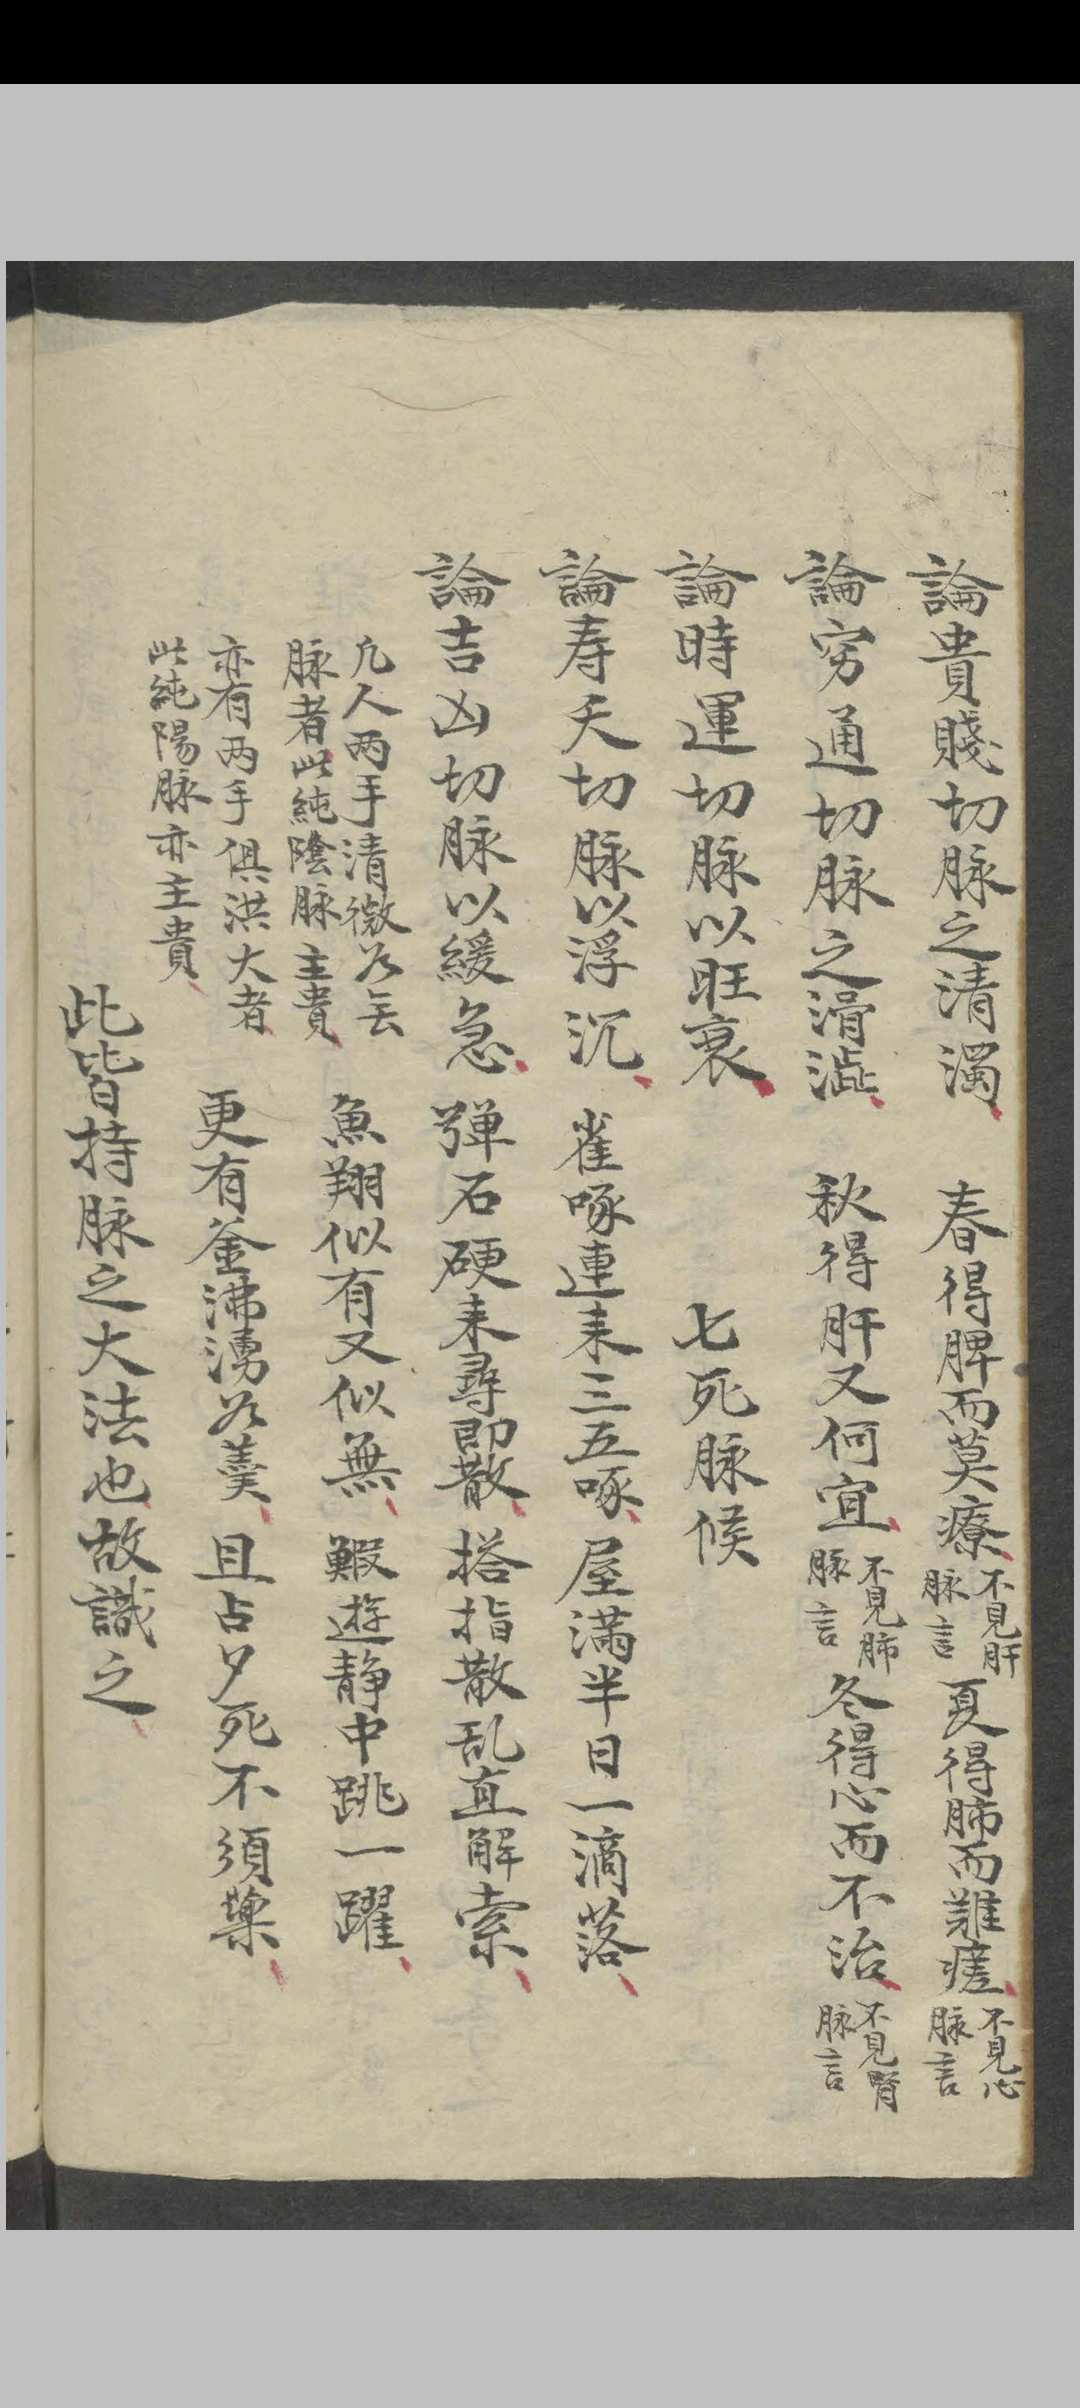 論貴賤切脉之清濁
春得脾而莫療
不見肝
脉言
夏得肺而難瘥
不見心
脉言
論穷通切脉之滑澁
秋得肝又何宜
不見肺
脉言
冬得心而不治
不見腎
脉言
論時運切脉以旺衰
七死脉候
論寿夭切脉以浮沉
雀啄連来三五啄
屋满半日一滴落
論吉凶切脉以緩急
弹石硬来尋即散
搭指散乱直解索
凢人两手清微如无
脉者此純陰脉主貴
魚翔似有又似無
鰕遊静中跳一躍
亦有两手俱洪大者
此純陽脉亦主貴
更有釜沸湧如羹
旦占夕死不須藥
此皆持脉之大法也故識之